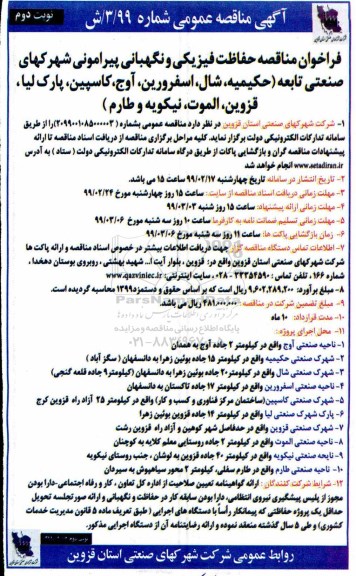 نوبت دوم
آگهی مناقصه عمومی شماره ۳/۹۹/ش
فراخوان مناقصه حفاظت فیزیکی و نگهبانی پیرامونی شهرکهای
صنعتی تابعه (حکیمیه، شال، اسفرورین، آوج، کاسپین، پارک لیا،
قزوین، الموت، نیکویه و طارم)
۱- شرکت شهرکهای صنعتی استان قزوین در نظر دارد مناقصه عمومی بشماره (۲۰۹۹۰۰۱۰۸۵۰۰۰۰۰۳) را از طریق
سامانه تدارکات الکترونیکی دولت برگزار نماید. کلیه مراحل برگزاری مناقصه از دریافت اسناد مناقصه تا ارائه
پیشنهادات مناقصه گران و بازگشایی پاکات از طریق درگاه سامانه تدارکات الکترونیکی دولت (ستاد) به آدرس
www.setadiran.ir انجام خواهد شد.
۲- تاریخ انتشار در سامانه تاریخ چهارشنبه ۹۹/۰۲/۱۷ ساعت ۱۵ می باشد.
۳- مهلت زمانی دریافت اسناد مناقصه از سایت: ساعت ۱۵ روز چهارشنبه مورخ ۹۹/۰۲/۲۴
۴- مهلت زمانی ارائه پیشنهاد: ساعت ۱۵ روز شنبه ۹۹/۰۳/۰۳
۵- مهلت زمانی تسلیم ضمانت نامه به کارفرما ساعت ۱۰ روز سه شنبه مورخ ۹۹/۰۳/۰۶
۶- زمان بازگشایی پاکت ها: ساعت ۱۱ روز سه شنبه مورخ ۹۹/۰۳/۰۶
۷- اطلاعات تماس دستگاه مناقصه گزار جهت دریافت اطلاعات بیشتر در خصوص اسناد مناقصه و ارائه پاکت ها
شرکت شهرکهای صنعتی استان قزوین واقع در: قزوین، بلوار آیت ا... شهید بهشتی، روبروی بوستان دهخدا،
شماره ۱۶۶، تلفن تماس: ۳۳۳۵۴۵۹۰ - ۰۲۸ سایت اینترنتی: www.qazviniec.ir
۸- مبلغ برآورد: ۹.۶۰۲.۲۸۹.۲۰۰ ریال است که بر اساس حقوق و دستمزد ۱۳۹۹ محاسبه گردیده است.
۹- مبلغ تضمین شرکت در مناقصه: ۴۸۱.۰۰۰.۰۰۰ ریال می باشد.
۱۰- مدت قرارداد: ۱۰ ماه
۱۱- محل اجرای پروژه:
۱- ناحیه صنعتی آوج واقع در کیلومتر ۲ جاده آوج به همدان
۲- شهرک صنعتی حکیمیه واقع در کیلومتر ۱۵ جاده بوئین زهرا به دانسفهان (سگز آباد)
۳- شهرک صنعتی شال واقع در کیلومتر ۲۰ جاده بوئین زهرا به دانسفهان (کیلومتر ۹ جاده قلعه گنجی)
۴- ناحیه صنعتی اسفرورین واقع در کیلومتر ۱۷ جاده تاکستان به دانسفهان
۵- شهرک صنعتی کاسپین (ساختمان مرکز فناوری و کسب و کار) واقع در کیلومتر ۲۵ آزاد راه قزوین کرج
۶- پارک شهرک صنعتی لیا واقع در کیلومتر ۱۴ جاده قزوین بوئین زهرا
۷- شهرک صنعتی قزوین واقع در حدفاصل شهر کوهین و آزاد راه قزوین رشت
۸- ناحیه صنعتی الموت واقع در کیلومتر ۲ جاده روستایی معلم کلایه به کوچنان
۹- نایحه صنعتی نیکویه واقع در کیلومتر ۴۰ جاده قزوین به لوشان، جنب روستای نیکویه
۱۰- ناحیه صنعتی طارم واقع در طارم سفلی، کیلومتر ۲ محور سیاهپوش به سیردان
۱۲- شرایط شرکت کنندگان: ارائه گواهینامه تعیین صلاحیت از اداره کل تعاون، کار و رفاه اجتماعی-دارا بودن
مجوز از پلیس پیشگیری نیروی انتظامی، دارا بودن سابقه کار در حفاظت و نگهبانی و ارائه صورتجلسه تحویل
حداقل یک پروژه حفاظتی که پیمانکار رأساً با دستگاه های اجرایی (طبق تعریف ماده ۵ قانون مدیریت خدمات
کشوری) و طی ۵ سال گذشته منعقد نموده و ارائه رضایتنامه آن از دستگاه اجرایی مذکور.
روابط عمومی شرکت شهرکهای صنعتی استان قزوین